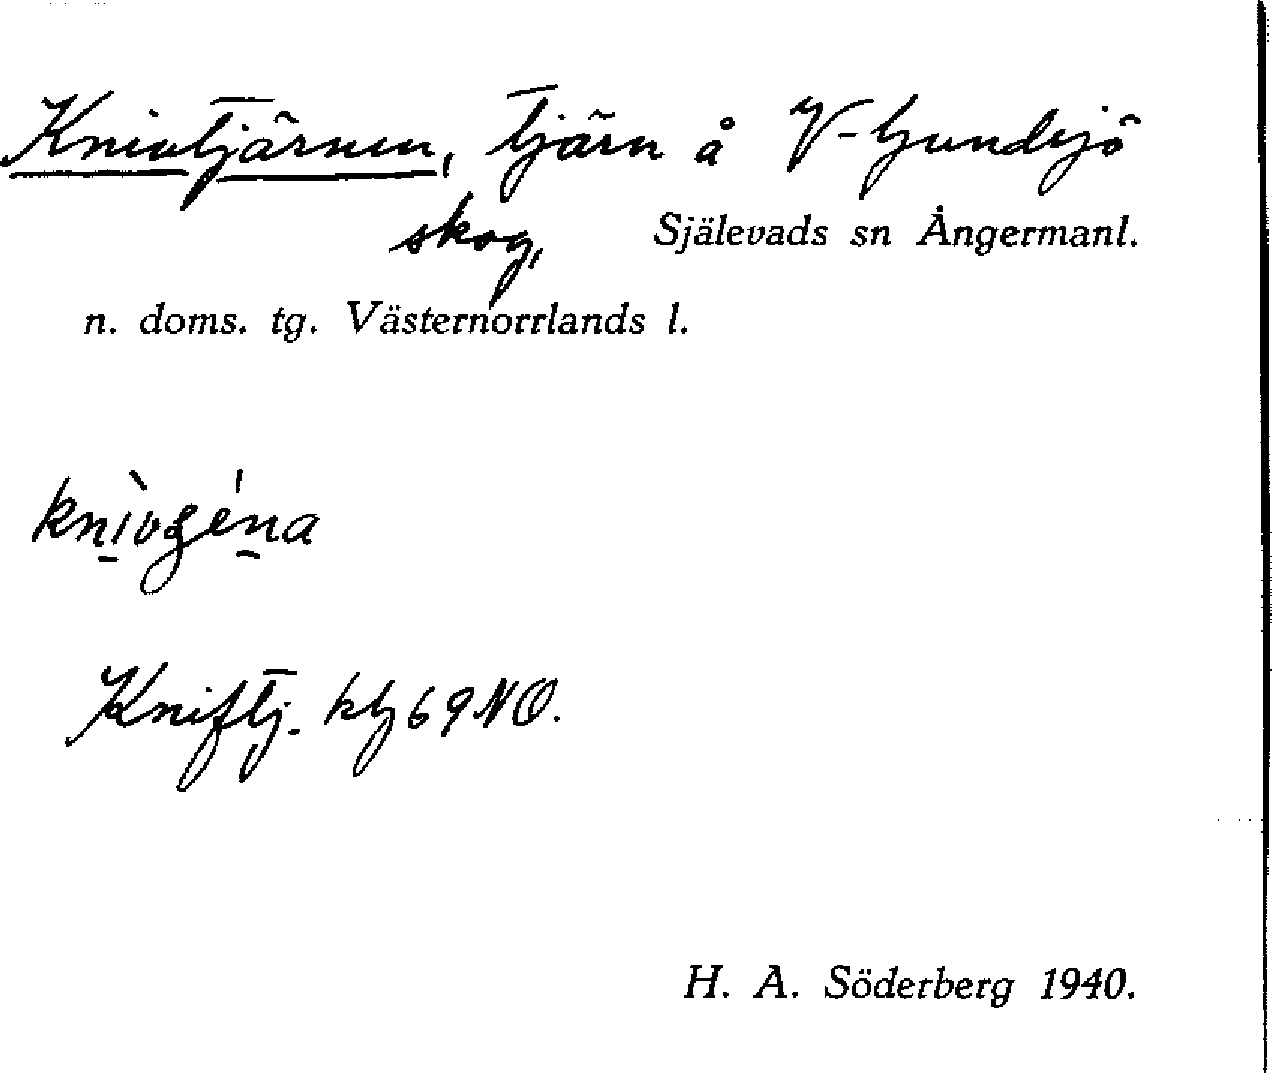 Knivtjärnen, tjärn å
skog, Själevads sn Ångermanl.
n. doms. tg. Västernorrlands l.
Kniftj. kbl 69 NO.
H. A. Söderberg 1940.